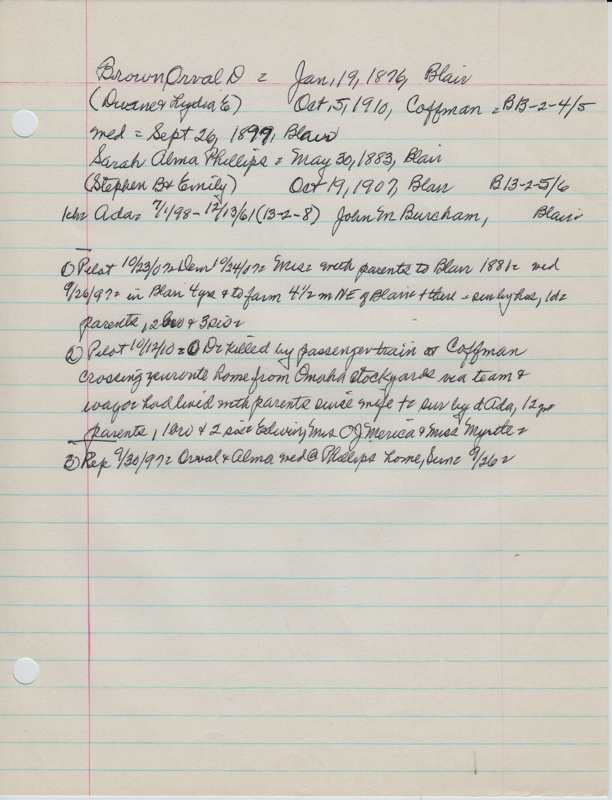 Brown Orval D = Jan, 19, 1876, Blair
(Duane & Lydia E) Oct, 5, 1910, Coffman = B13-2-4/5
wed = Sept 26, 1897, Blair
Sarah Alma Phillips = May 30, 1883, Blair
(Stephen B & Emily) Oct 19, 1907, Blair B13-2-5/6
1chr Ada = 7/1/98 - 12/13/61 (13-2-8) John M Burcham, Blair
① Pilot 10/23/07 = Dem 10/24/07 = Mis = with parents to Blair 1881 = wed
9/26/97 = in Blair 4yrs & to farm 4 1/2 m NE of Blair & there = sur by hus, 1d =
parents, 2 bro & 3 sis =
② Pilot 10/12/10 = O D killed by passenger train at Coffman
crossing enroute home from Omaha stockyards via team &
wagon had lived with parents since wife + = sur by d Ada, 12 yr =
parents, 1 bro & 2 sis = Edwin, Mrs O J Merica & Miss Myrtle =
③ Rep 9/30/97 = Orval & Alma wed @ Phillips home, Sun = 9/26 =